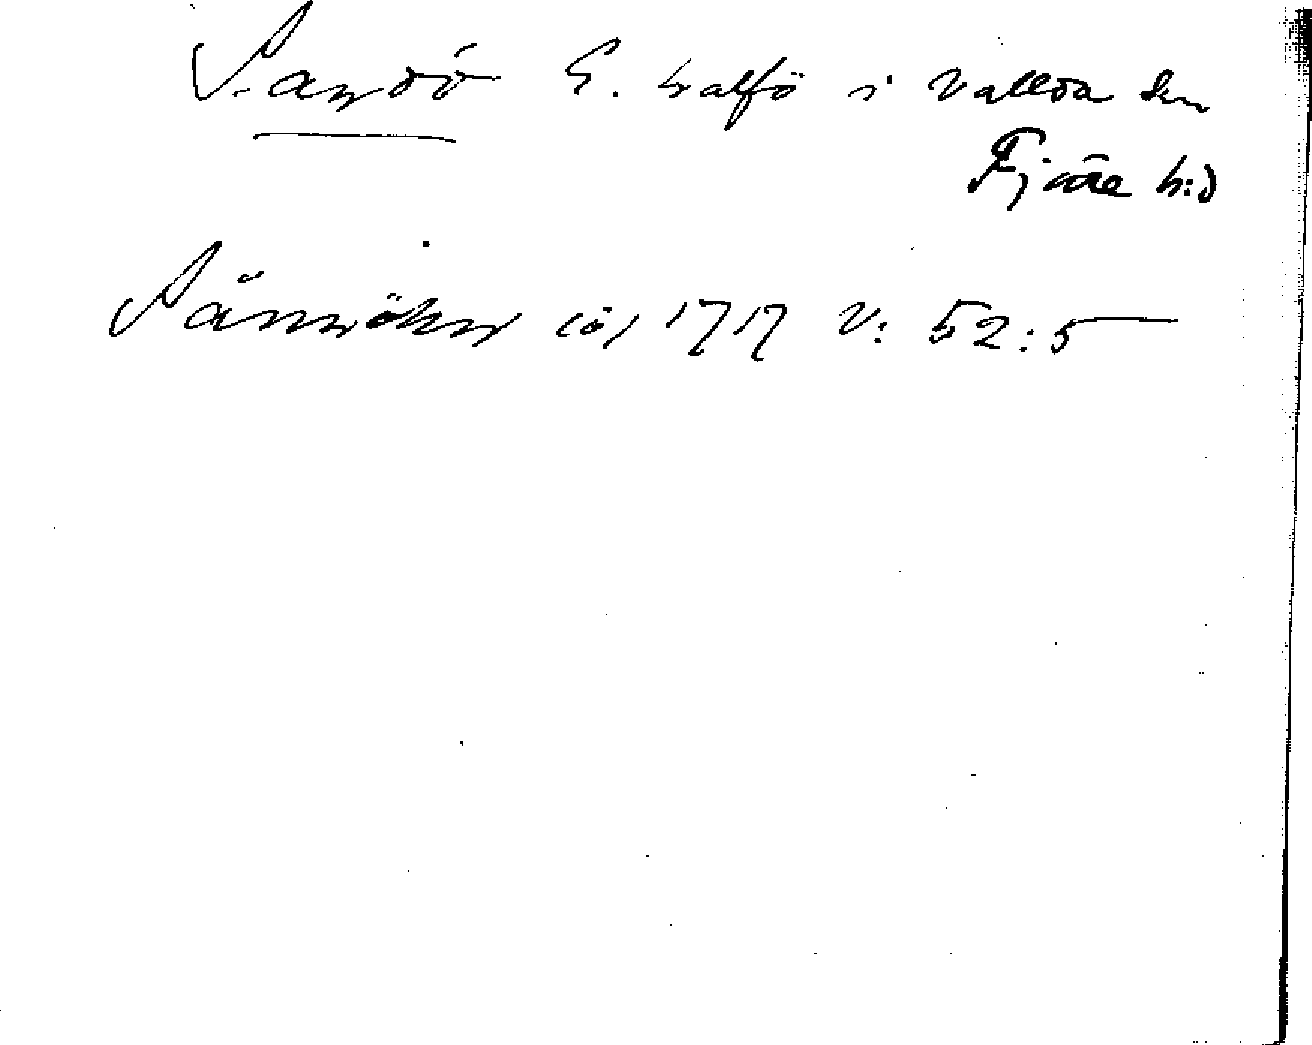 Sandö G. halfö i Vallda sn
Fjäre h:d
(ö) 1717 V: 52:5